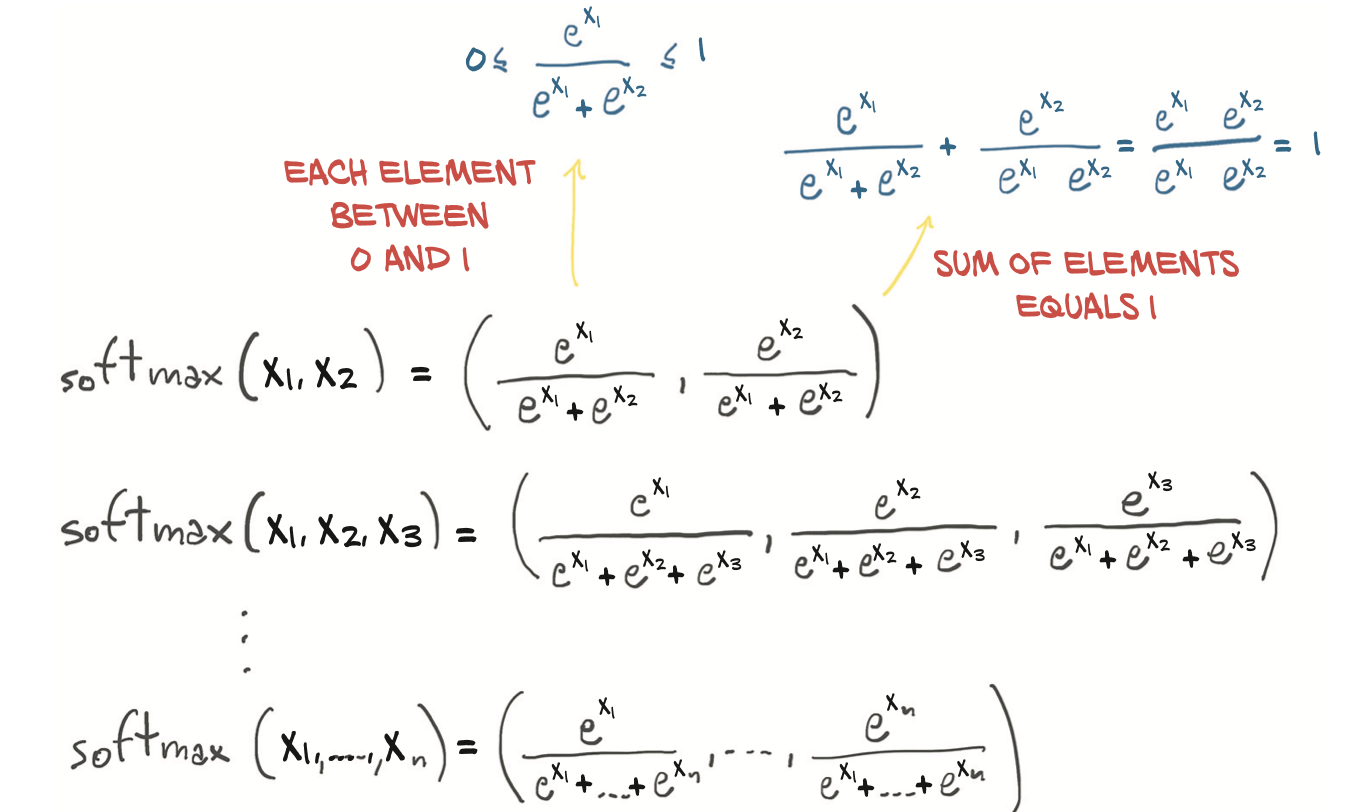 0 ≤ e^x₁ / (e^x₁ + e^x₂) ≤ 1
e^x₁ / (e^x₁ + e^x₂) + e^x₂ / (e^x₁ e^x₂) = (e^x₁ e^x₂) / (e^x₁ e^x₂) = 1
EACH ELEMENT
BETWEEN
0 AND 1
SUM OF ELEMENTS
EQUALS 1
softmax (x₁, x₂) = ( e^x₁ / (e^x₁ + e^x₂) , e^x₂ / (e^x₁ + e^x₂) )
softmax (x₁, x₂, x₃) = ( e^x₁ / (e^x₁ + e^x₂ + e^x₃) , e^x₂ / (e^x₁ + e^x₂ + e^x₃) , e^x₃ / (e^x₁ + e^x₂ + e^x₃) )
⋮
softmax (x₁, ...., xₙ) = ( e^x₁ / (e^x₁ + ... + e^xₙ) , ... , e^xₙ / (e^x₁ + ... + e^xₙ) )